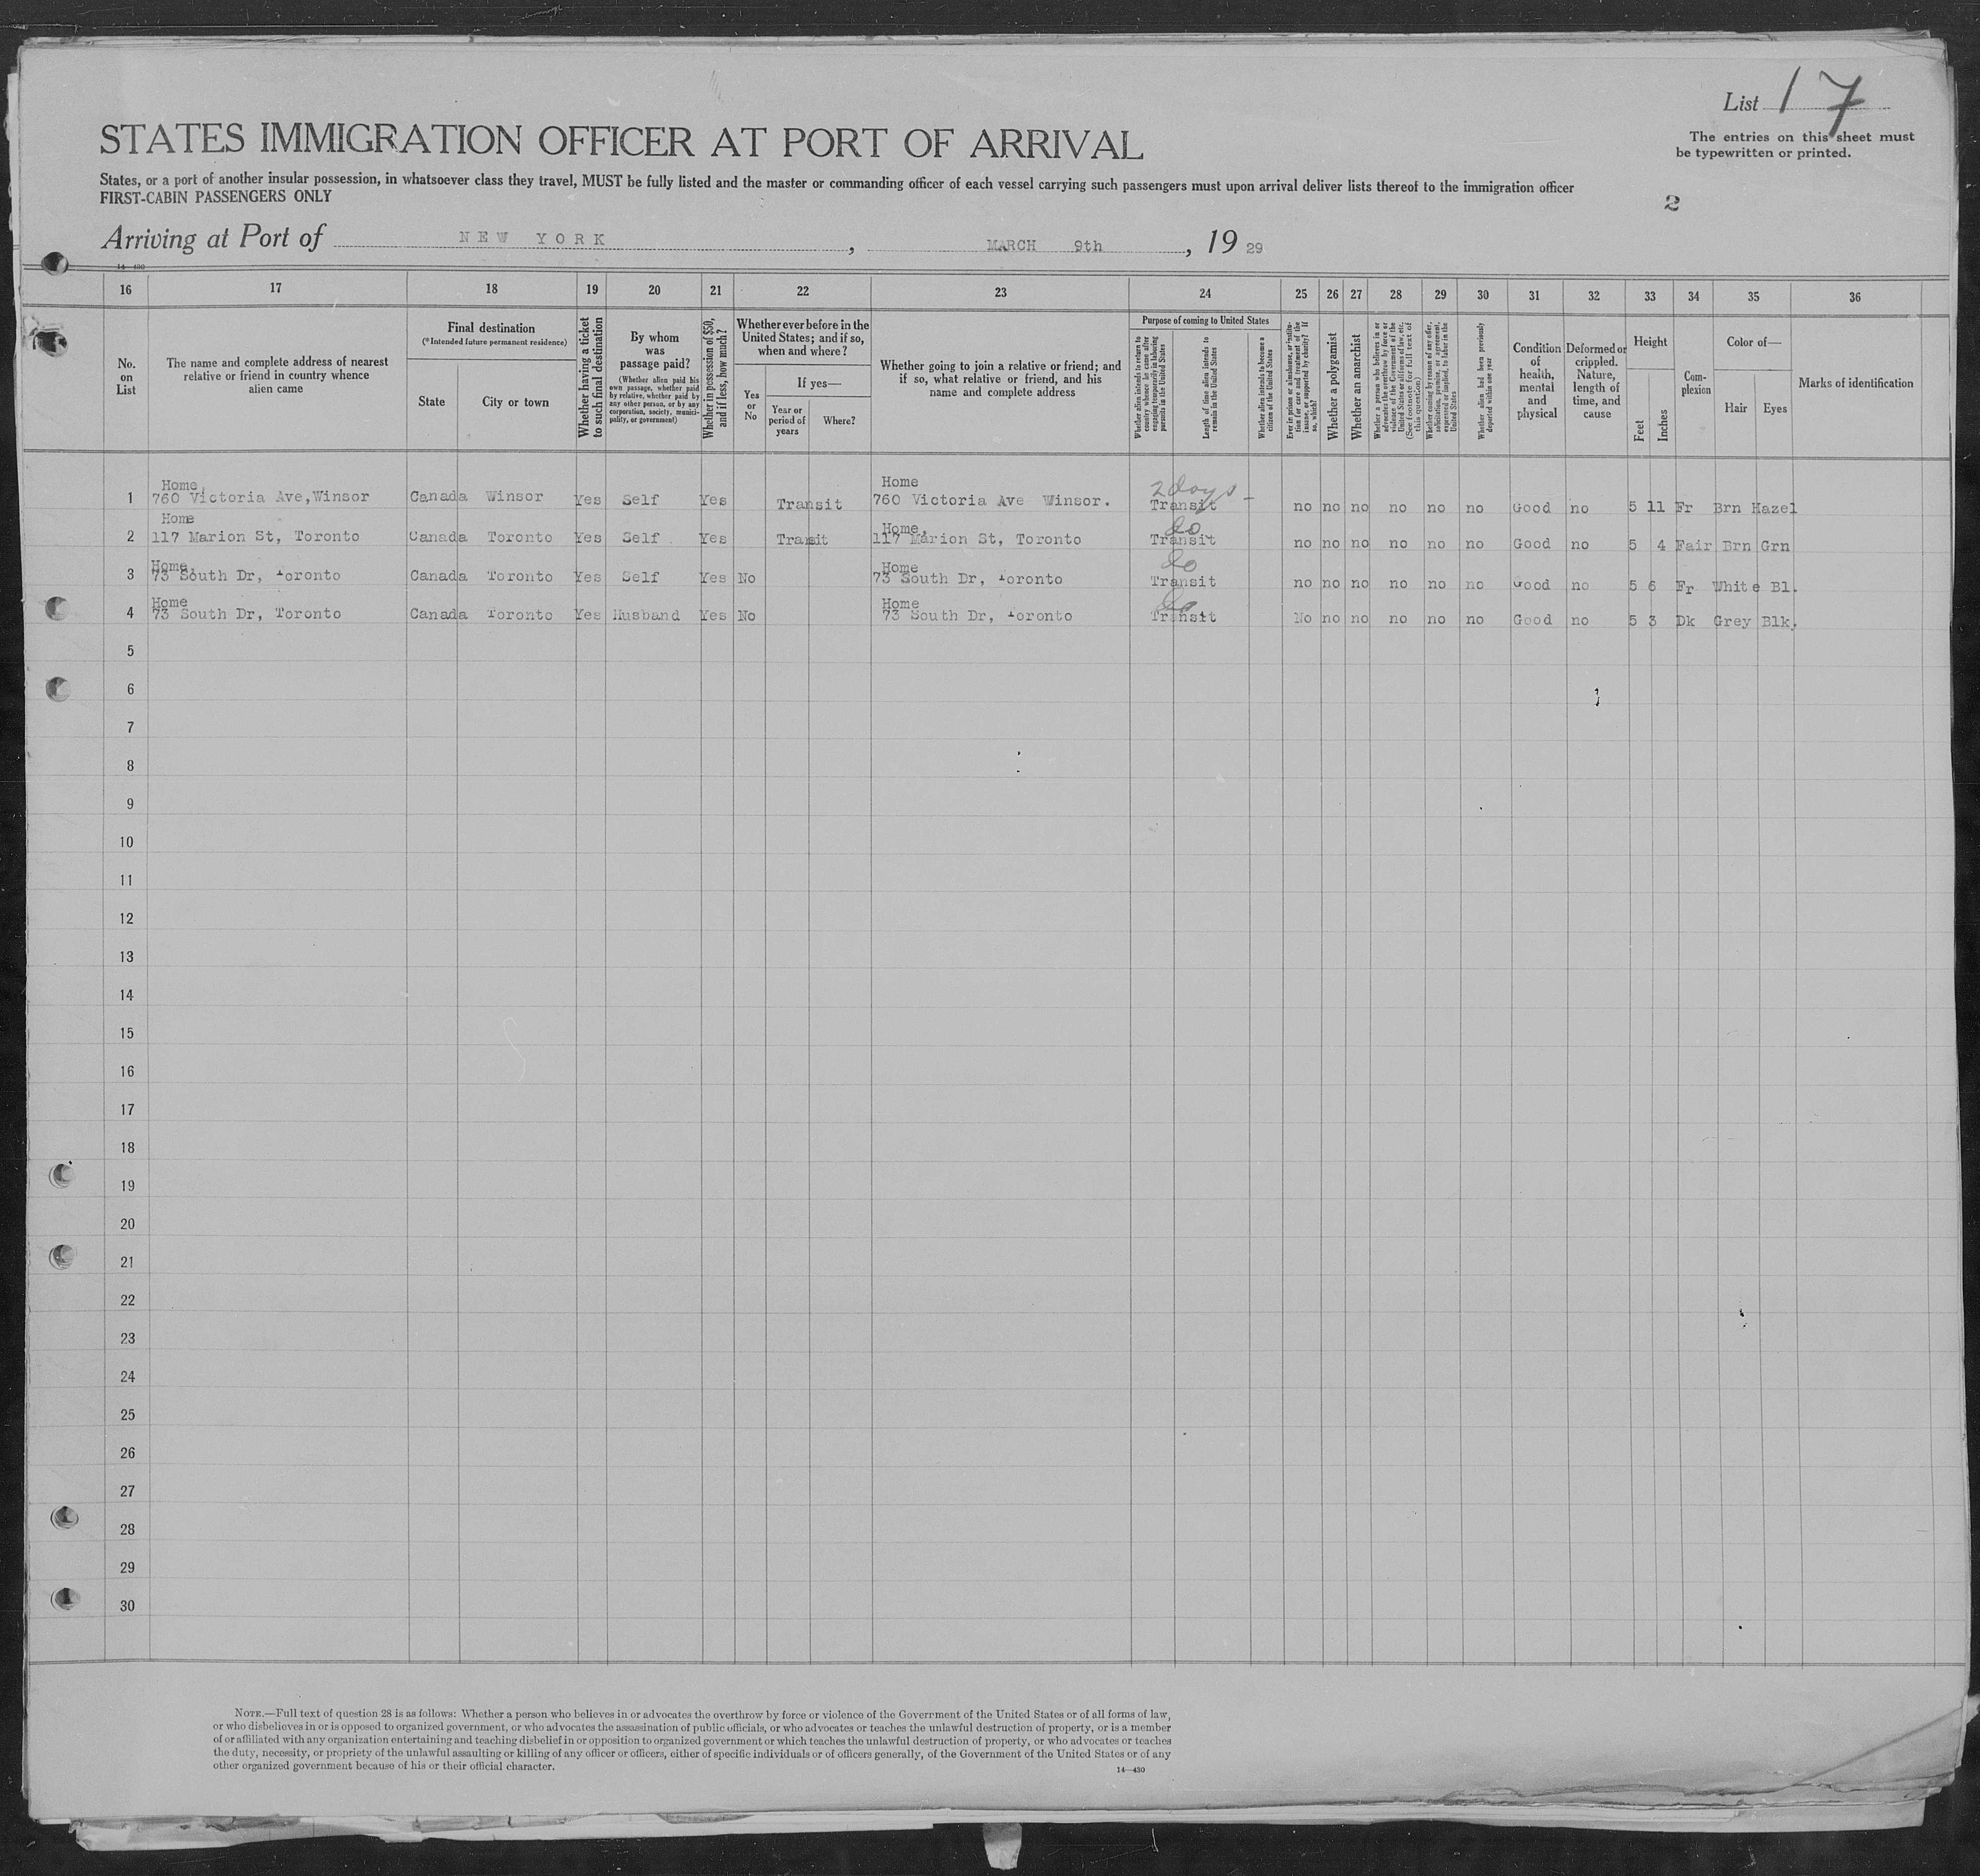 List 17
The entries on this sheet must
be typewritten or printed.
STATES IMMIGRATION OFFICER AT PORT OF ARRIVAL
States, or a port of another insular possession, in whatsoever class they travel, MUST be fully listed and the master or commanding officer of each vessel carrying such passengers must upon arrival deliver lists thereof to the immigration officer
FIRST-CABIN PASSENGERS ONLY
2
Arriving at Port of NEW YORK, MARCH 9th, 19 29
14-430
16 17 18 19 20 21 22 23 24 25 26 27 28 29 30 31 32 33 34 35 36
No. on List
The name and complete address of nearest
relative or friend in country whence
alien came
Final destination
(*Intended future permanent residence)
State
City or town
Whether having a ticket
to such final destination
By whom
was
passage paid?
(Whether alien paid his
own passage, whether paid
by relative, whether paid by
any other person, or by any
corporation, society, munici-
pality, or government)
Whether in possession of $50,
and if less, how much?
Whether ever before in the
United States; and if so,
when and where?
Yes
or
No
If yes—
Year or
period of
years
Where?
Whether going to join a relative or friend; and
if so, what relative or friend, and his
name and complete address
Purpose of coming to United States
Whether alien intends to return to
country whence he came after
engaging temporarily in laboring
pursuits in the United States
Length of time alien intends to
remain in the United States
Whether alien intends to become a
citizen of the United States
Ever in prison or almshouse, or institu-
tion for care and treatment of the
insane, or supported by charity? If
so, which?
Whether a polygamist
Whether an anarchist
Whether a person who believes in or
advocates the overthrow by force or
violence of the Government of the
United States or all forms of law, etc.
(See footnote for full text of
this question)
Whether coming by reason of any offer,
solicitation, promise, or agreement,
expressed or implied, to labor in the
United States
Whether alien had been previously
deported within one year
Condition
of
health,
mental
and
physical
Deformed or
crippled.
Nature,
length of
time, and
cause
Height
Feet
Inches
Com-
plexion
Color of—
Hair
Eyes
Marks of identification
Home, Home 2 days -
1 760 Victoria Ave,Winsor Canada Winsor Yes Self Yes Transit 760 Victoria Ave Winsor. Transit no no no no no no Good no 5 11 Fr Brn Hazel
Home Home, do
2 117 Marion St, Toronto Canada Toronto Yes Self Yes Transit 117 Marion St, Toronto Transit no no no no no no Good no 5 4 Fair Brn Grn
Home, Home do
3 73 South Dr, Toronto Canada Toronto Yes Self Yes No 73 South Dr, Toronto Transit no no no no no no Good no 5 6 Fr White Bl.
Home Home do
4 73 South Dr, Toronto Canada Toronto Yes Husband Yes No 73 South Dr, Toronto Transit No no no no no no Good no 5 3 Dk Grey Blk.
5
6
7
8
9
10
11
12
13
14
15
16
17
18
19
20
21
22
23
24
25
26
27
28
29
30
NOTE.—Full text of question 28 is as follows: Whether a person who believes in or advocates the overthrow by force or violence of the Government of the United States or of all forms of law,
or who disbelieves in or is opposed to organized government, or who advocates the assassination of public officials, or who advocates or teaches the unlawful destruction of property, or is a member
of or affiliated with any organization entertaining and teaching disbelief in or opposition to organized government or which teaches the unlawful destruction of property, or who advocates or teaches
the duty, necessity, or propriety of the unlawful assaulting or killing of any officer or officers, either of specific individuals or of officers generally, of the Government of the United States or of any
other organized government because of his or their official character.
14—430